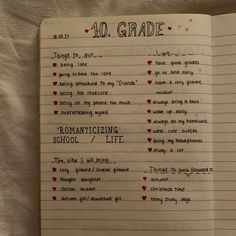 10. GRADE
Things to quit...
being late
going to bed too late
being attached to my "friends"
being too insecure
being on my phone too much
overstressing myself
"ROMANTICIZING
SCHOOL / LIFE
The vibe I will bring...
rory gilmore / lorelai gilmore
thought daughter
autumn girl / downtown girl
I will...
have good grades
go to bed early
have a rory gilmore
mindset
always bring a book
wake up early
always do my homework
wear cute outfits
bring my headphones
study a lot
Things to look forward to
autumn
christmas time
rainy study days